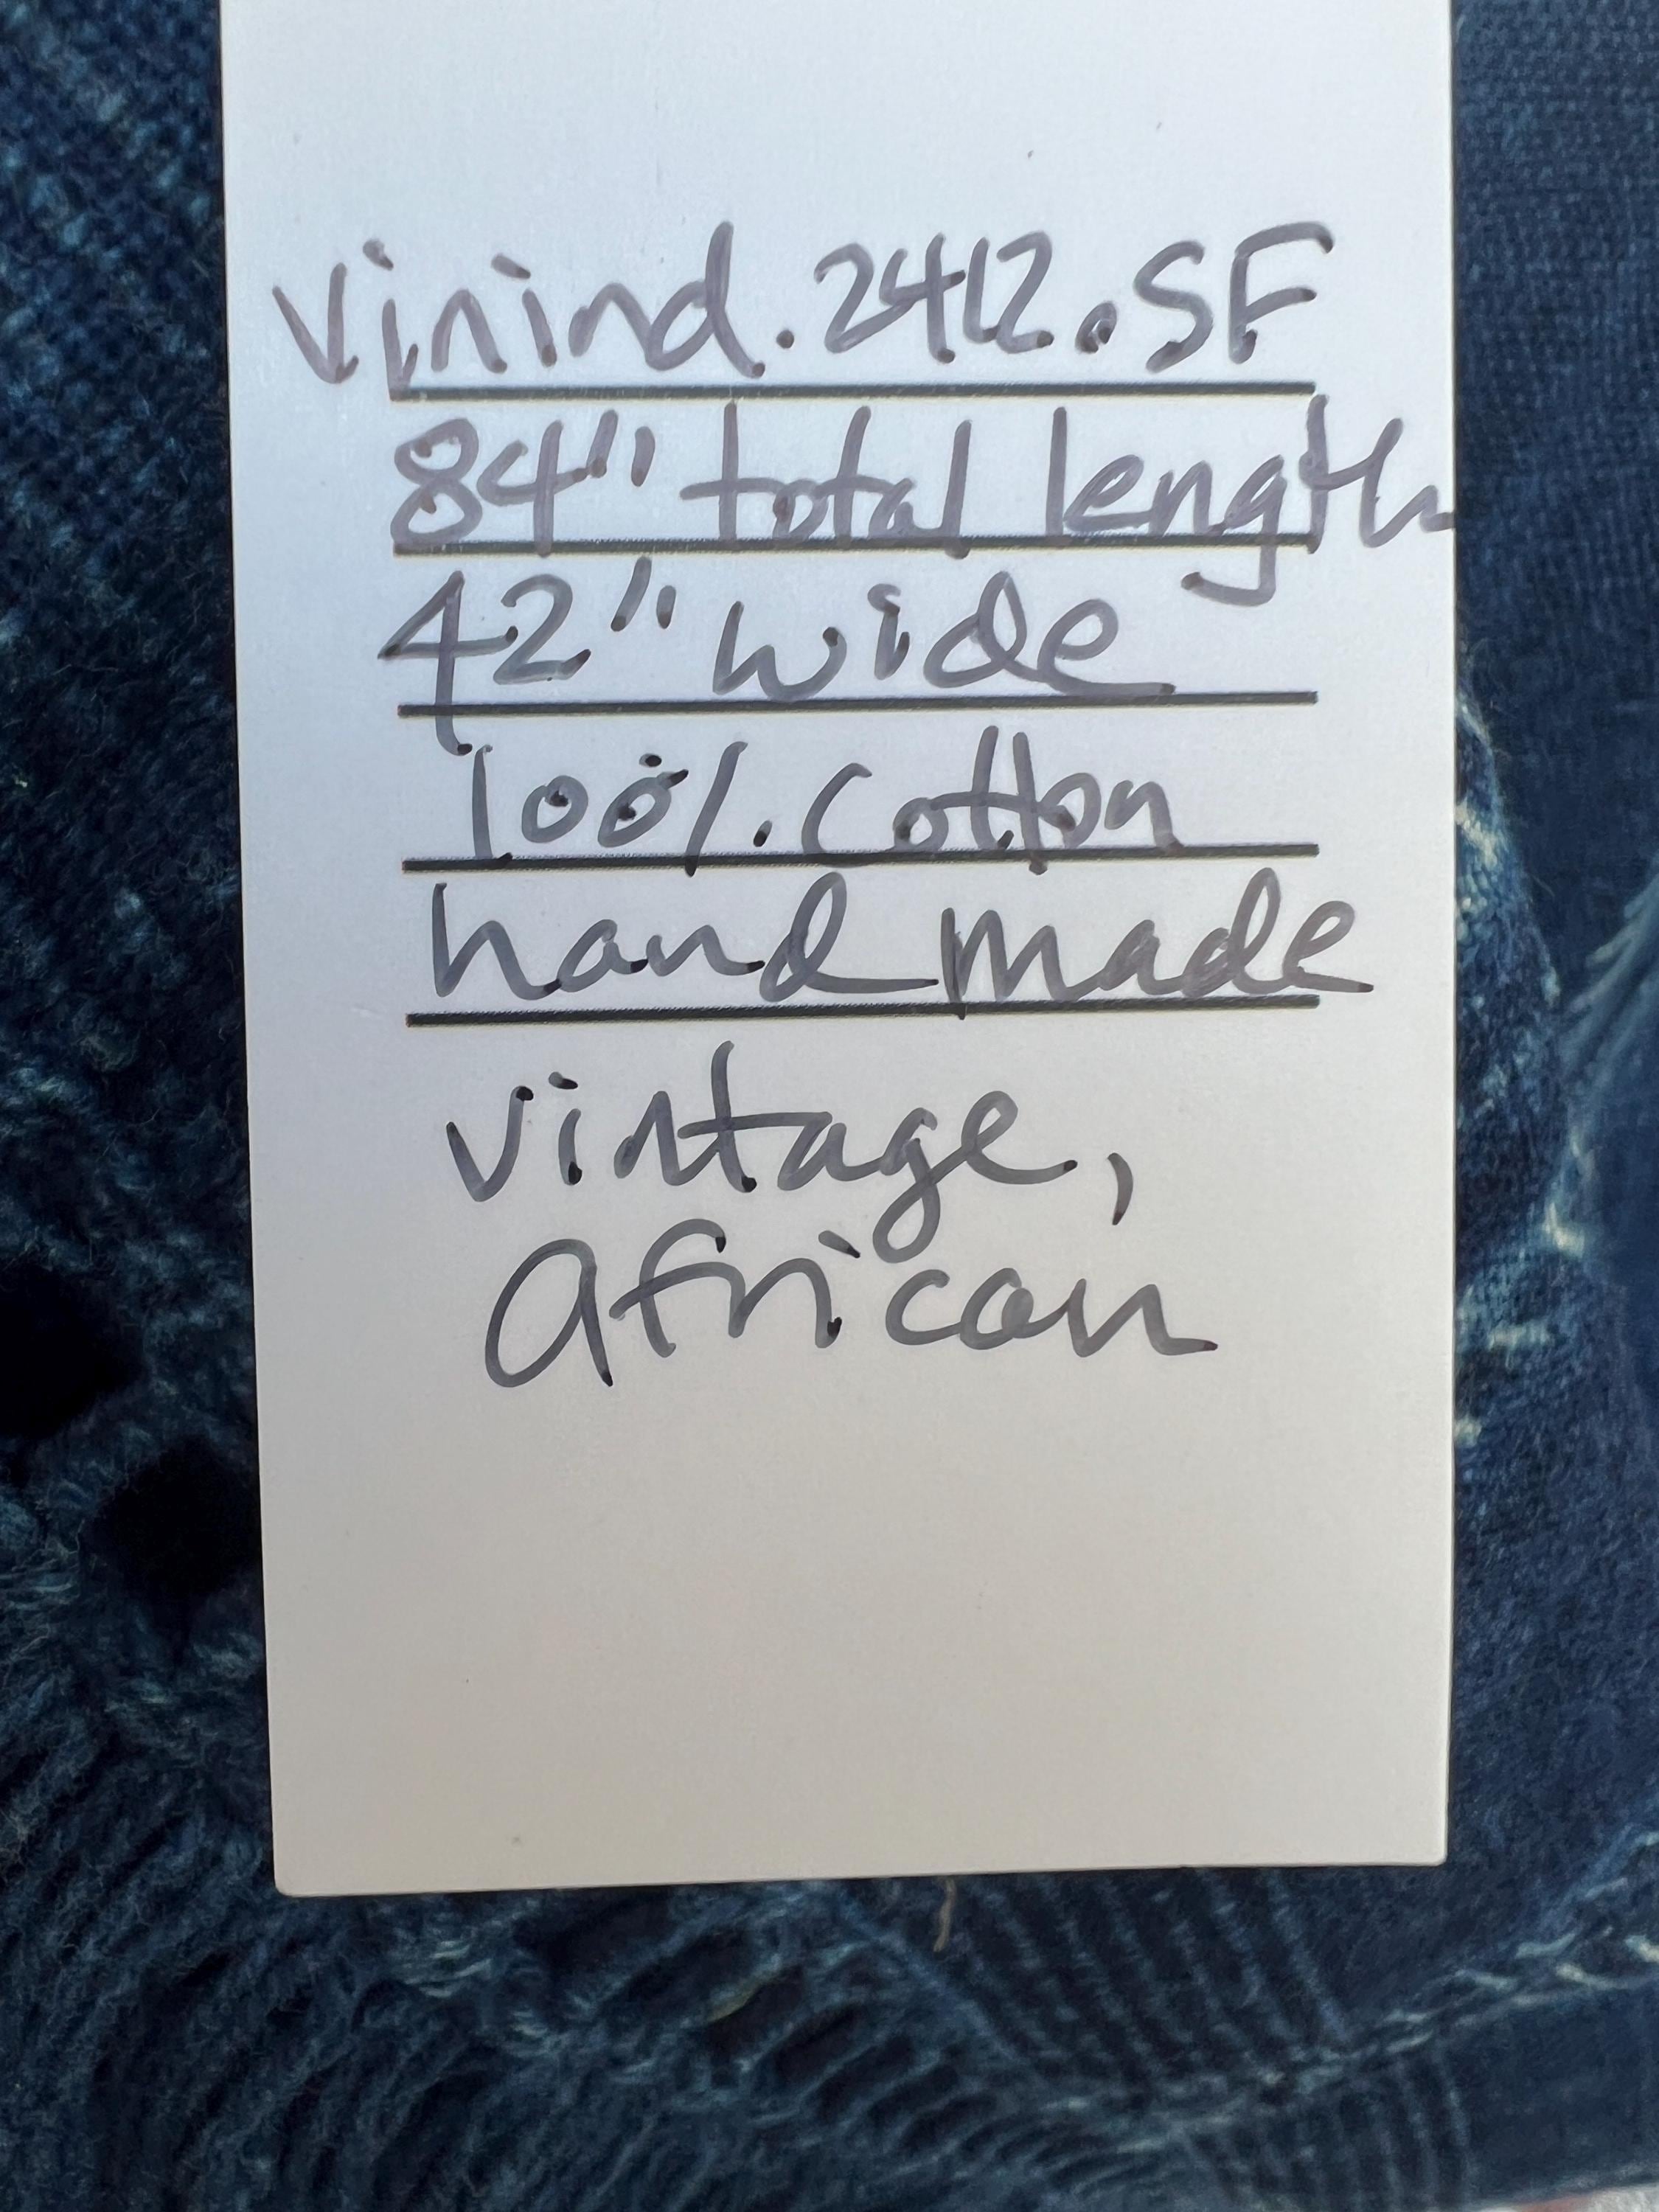 Vinind.2412.SF
84" total length
42" wide
100%. cotton
hand made
vintage,
African